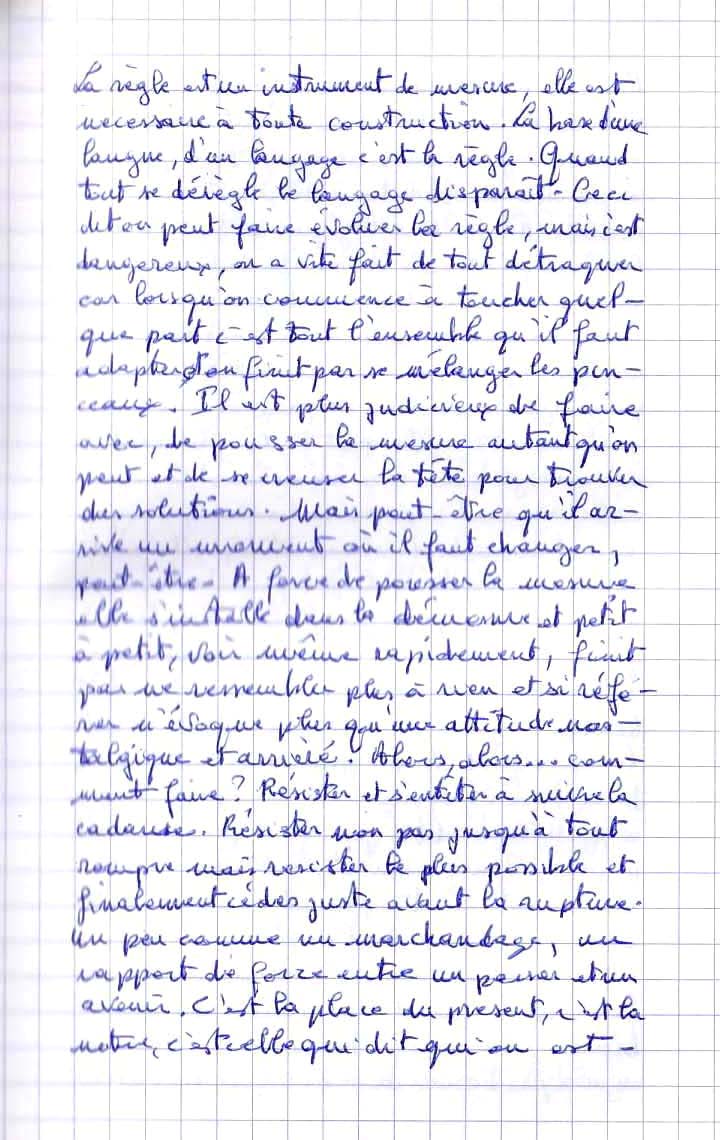 La règle est un instrument de mesure, elle est
necessaire à toute construction. La base d'une
langue, d'un langage c'est la règle. Quand
tout se dérègle le langage disparaît. Ceci
dit on peut faire évoluer la règle, mais c'est
dangereux, on a vite fait de tout détraquer
car lorsqu'on commence à toucher quel-
que part c'est tout l'ensemble qu'il faut
adapter et on finit par se mélanger les pin-
ceaux. Il est plus judicieux de faire
avec, de pousser la mesure autant qu'on
peut et de se creuser la tête pour trouver
des solutions. Mais peut-être qu'il ar-
rive un moment où il faut changer,
peut-être. A force de pousser la mesure
elle s'installe dans la démesure et petit
à petit, voir même rapidement, finit
par ne ressembler plus à rien et si réfé-
rer n'évoque plus qu'une attitude nos-
talgique et arriéré. Alors, alors... com-
ment faire? Résister et s'entêter à suivre la
cadanse. Résister non pas jusqu'à tout
rompre mais resister le plus possible et
finalement céder juste avant la rupture.
Un peu comme un marchandage, un
rapport de force entre un passer et un
avenir. C'est la place du present, c'est la
notre, c'est elle qui dit qui on est-